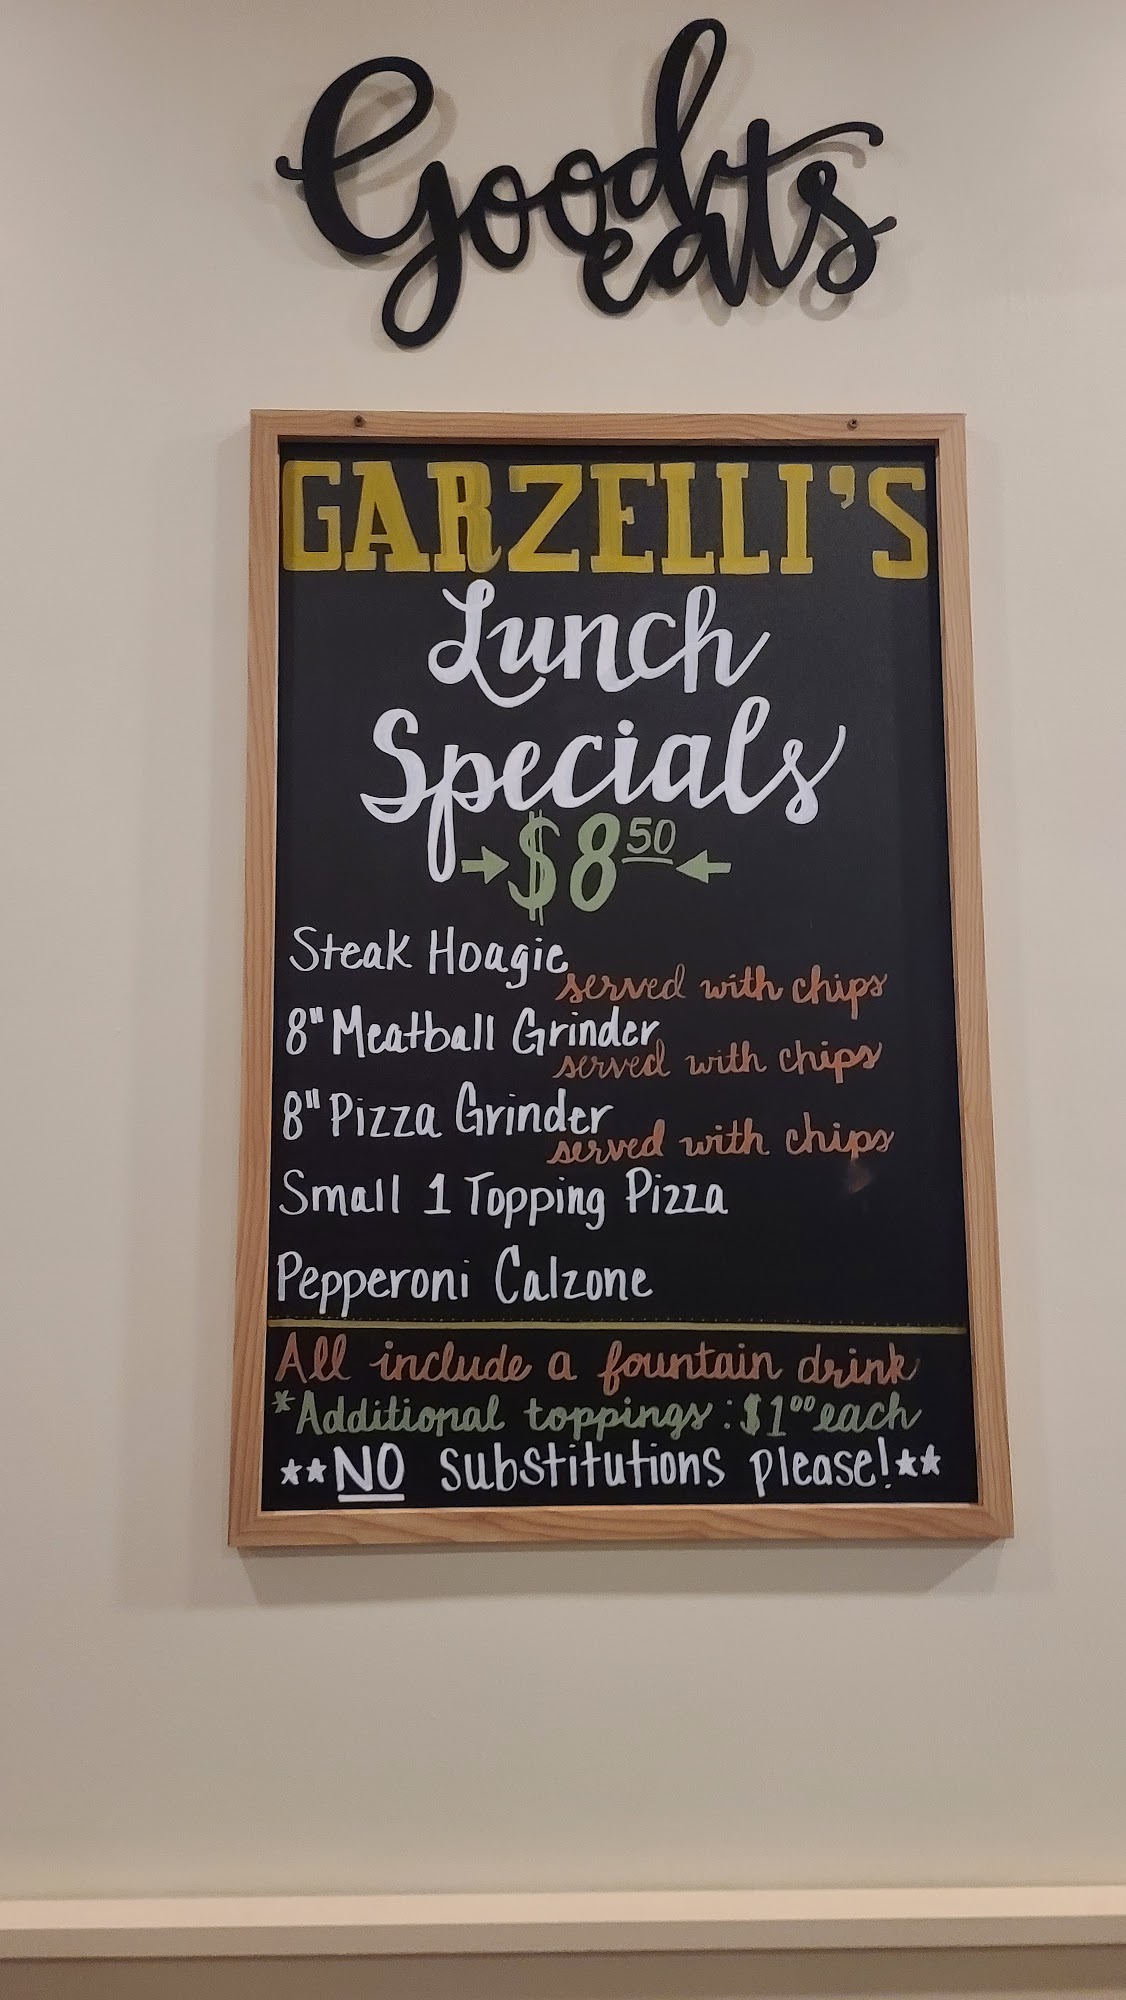 Good
eats
GARZELLI'S
Lunch
Specials
$8.50
Steak Hoagie
served with chips
8" Meatball Grinder
served with chips
8" Pizza Grinder
served with chips
Small 1 Topping Pizza
Pepperoni Calzone
All include a fountain drink
*Additional toppings: $1.00 each
**NO substitutions please!**